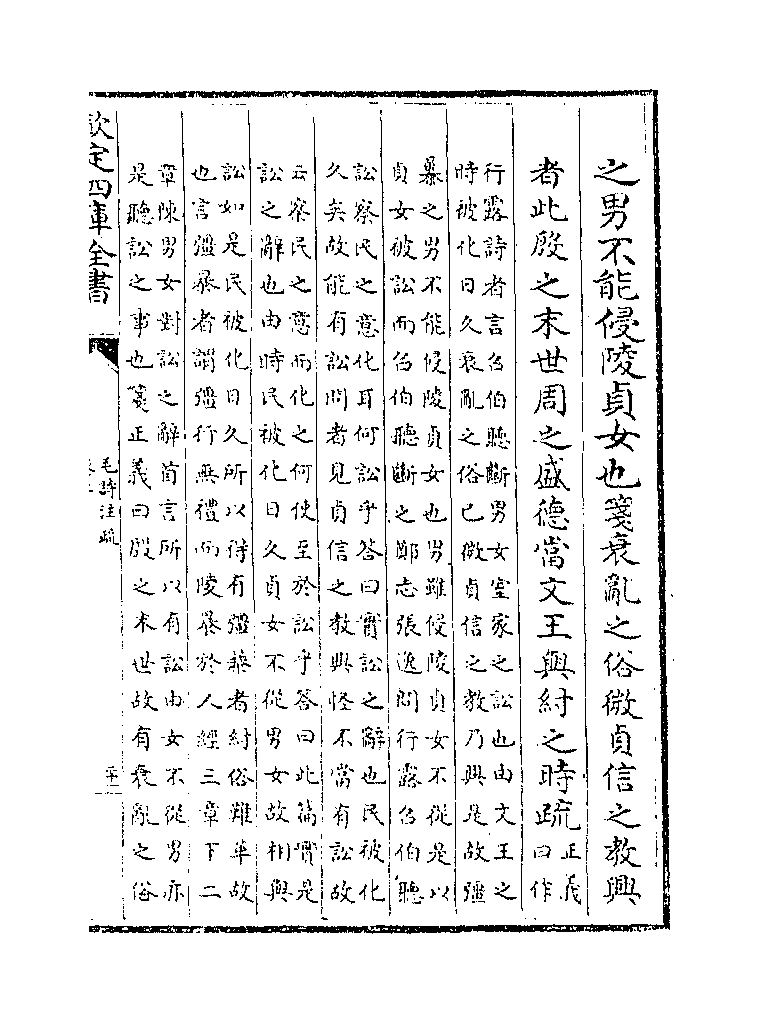 之男不能侵陵貞女也箋衰亂之俗微貞信之教興
者此殷之末世周之盛德當文王與紂之時疏正義
曰作
行露詩者言召伯聽斷男女室家之訟也由文王之
時被化日久衰亂之俗已微貞信之教乃興是故彊
暴之男不能侵陵貞女也男雖侵陵貞女不從是以
貞女被訟而召伯聽斷之鄭志張逸問行露召伯聽
訟察民之意化耳何訟乎答曰實訟之辭也民被化
久矣故能有訟問者見貞信之教興怪不當有訟故
云察民之意而化之何使至於訟乎答曰此篇實是
訟之辭也由時民被化日久貞女不從男女故相與
訟如是民被化日久所以得有彊暴者紂俗難革故
也言彊暴者謂彊行無禮而陵暴於人經三章下二
章陳男女對訟之辭首言所以有訟由女不從男亦
是聽訟之事也箋正義曰殷之末世故有衰亂之俗
欽定四庫全書
毛詩注疏